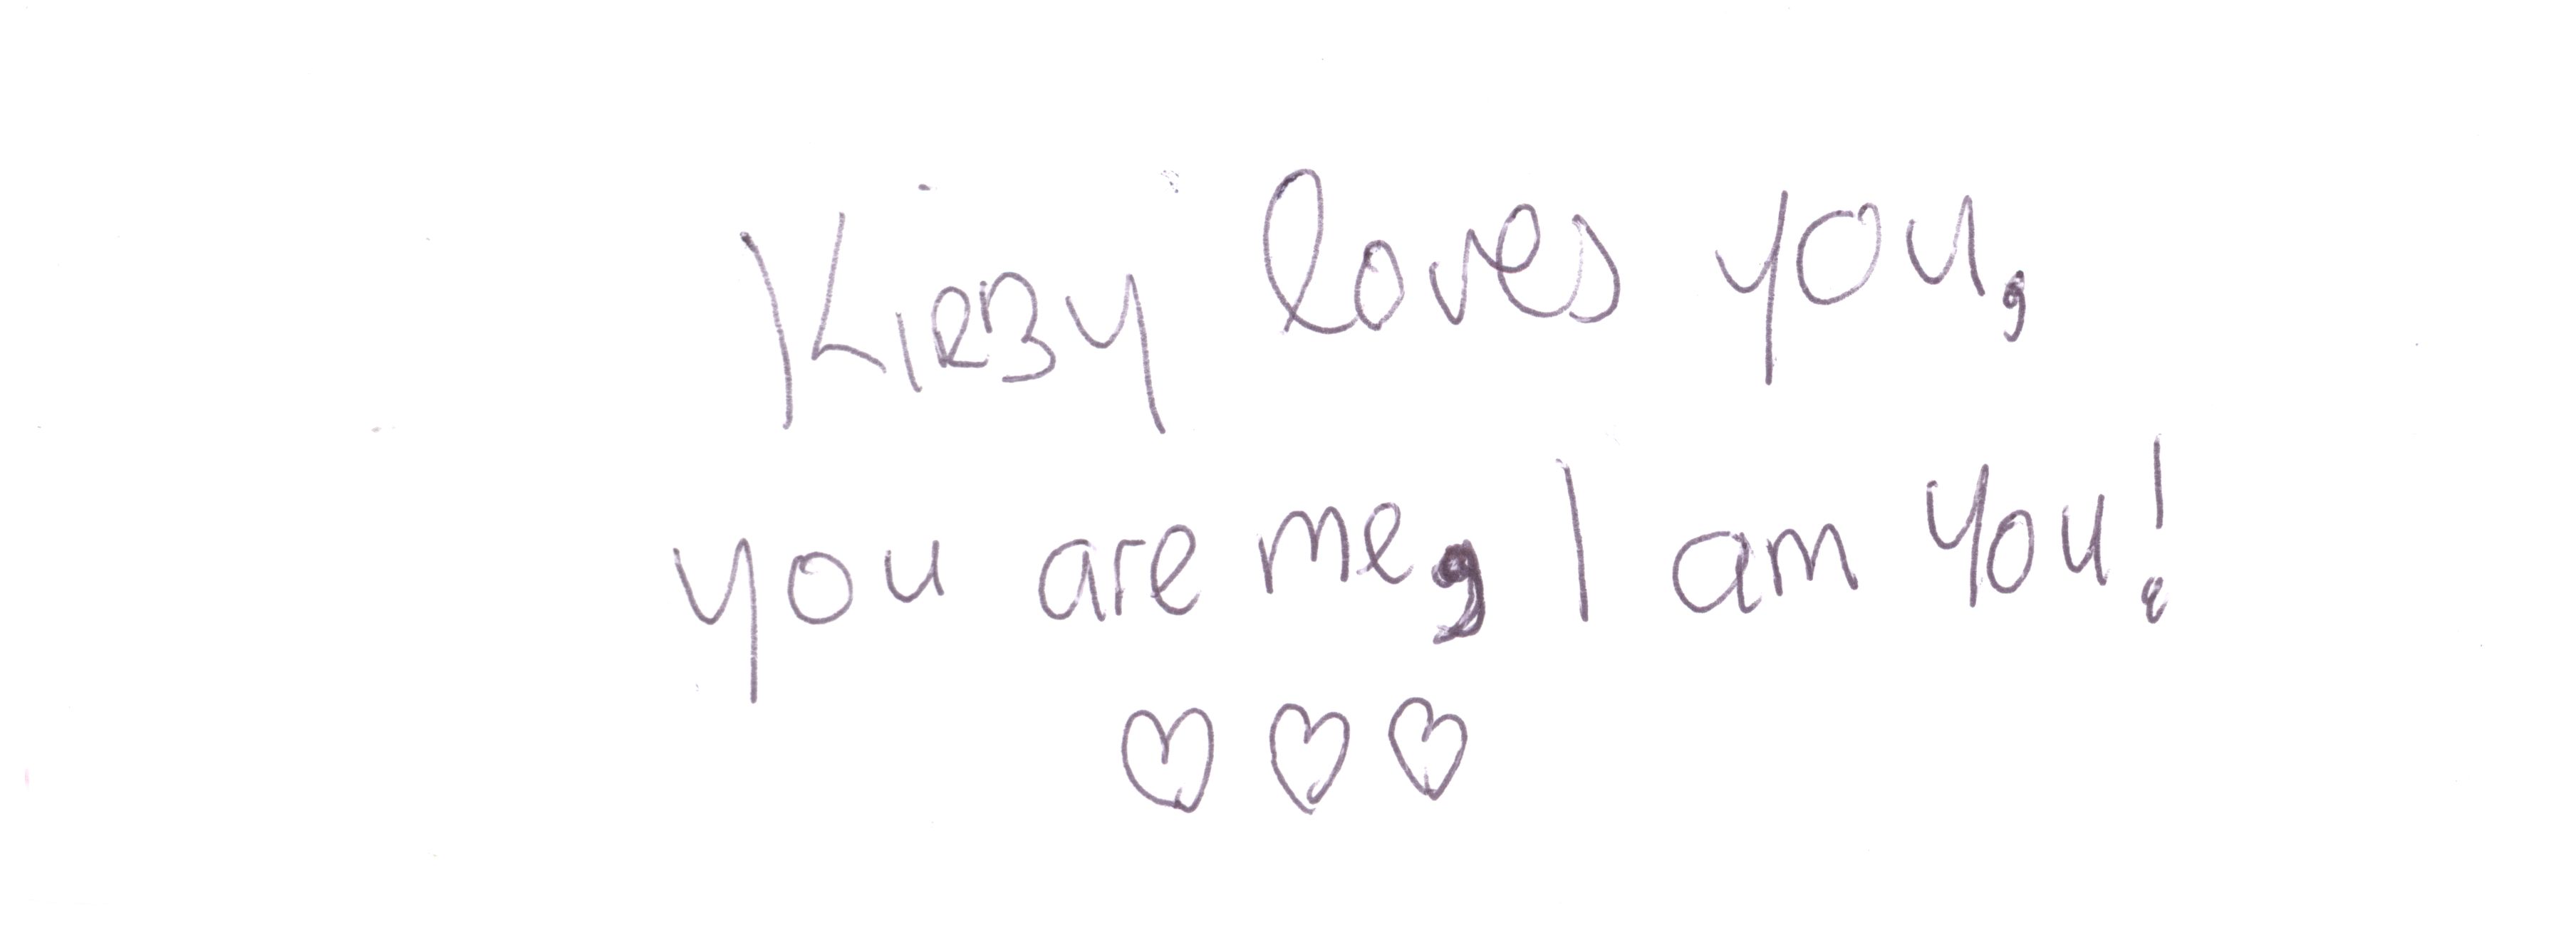 KiRBy loves you,
you are me, I am you!
♡ ♡ ♡